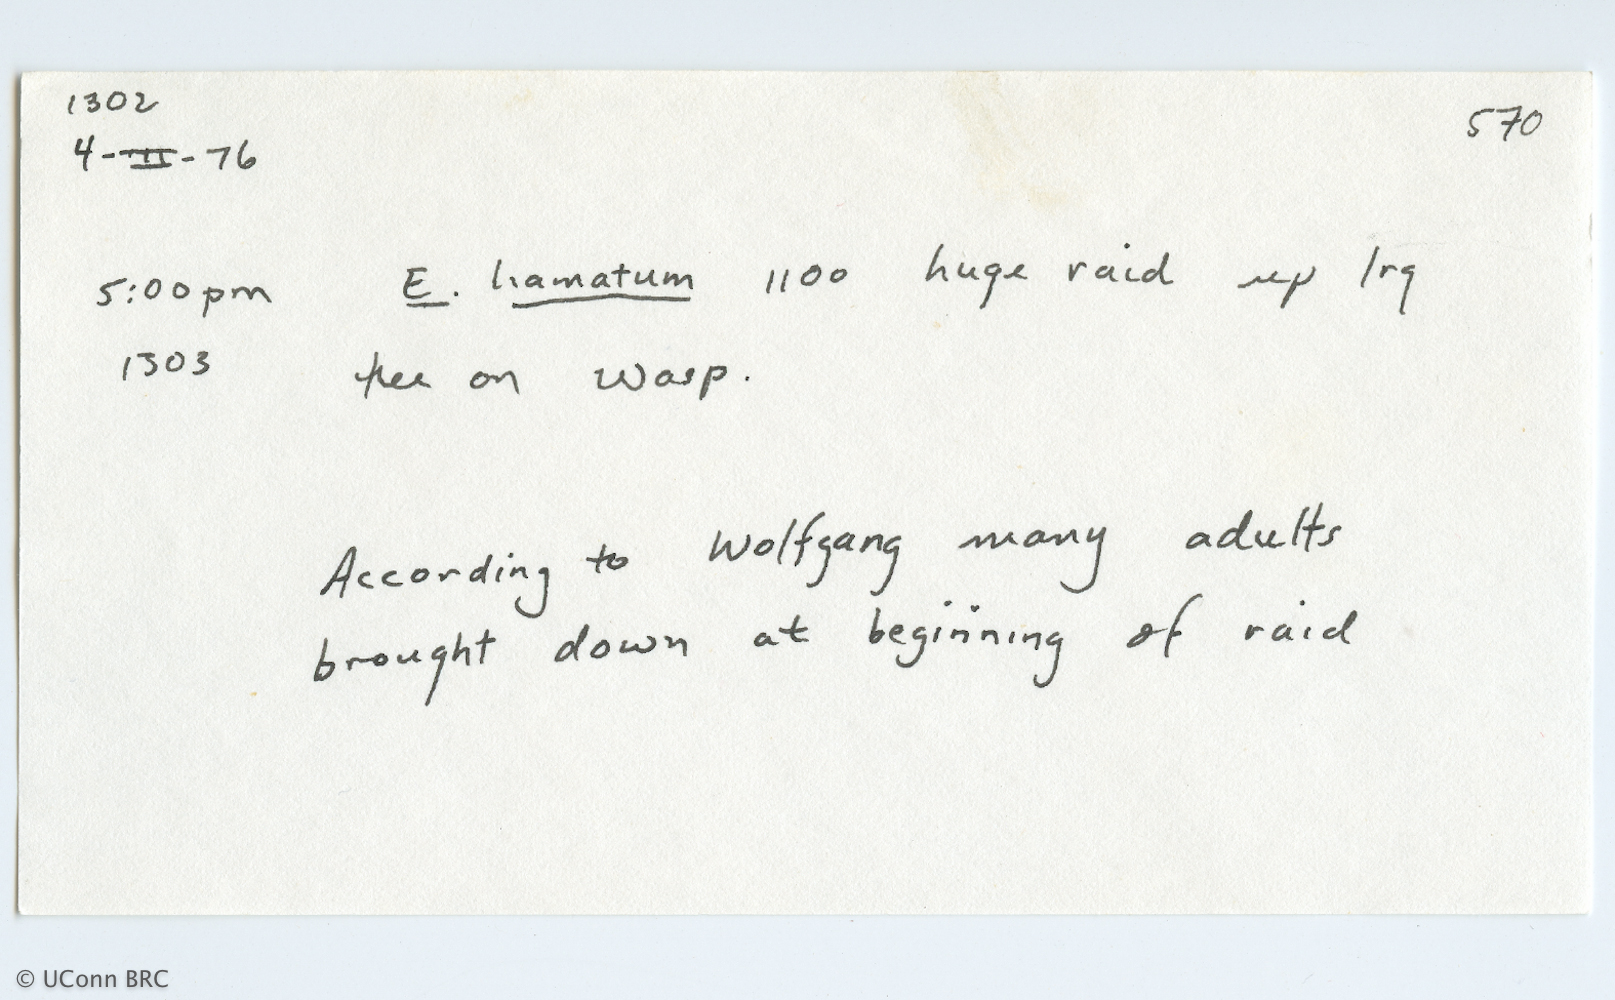 1302
570
4-II-76
5:00pm E. hamatum 1100 huge raid up lrg
1303 tree on wasp.
According to Wolfgang many adults
brought down at beginning of raid
© UConn BRC